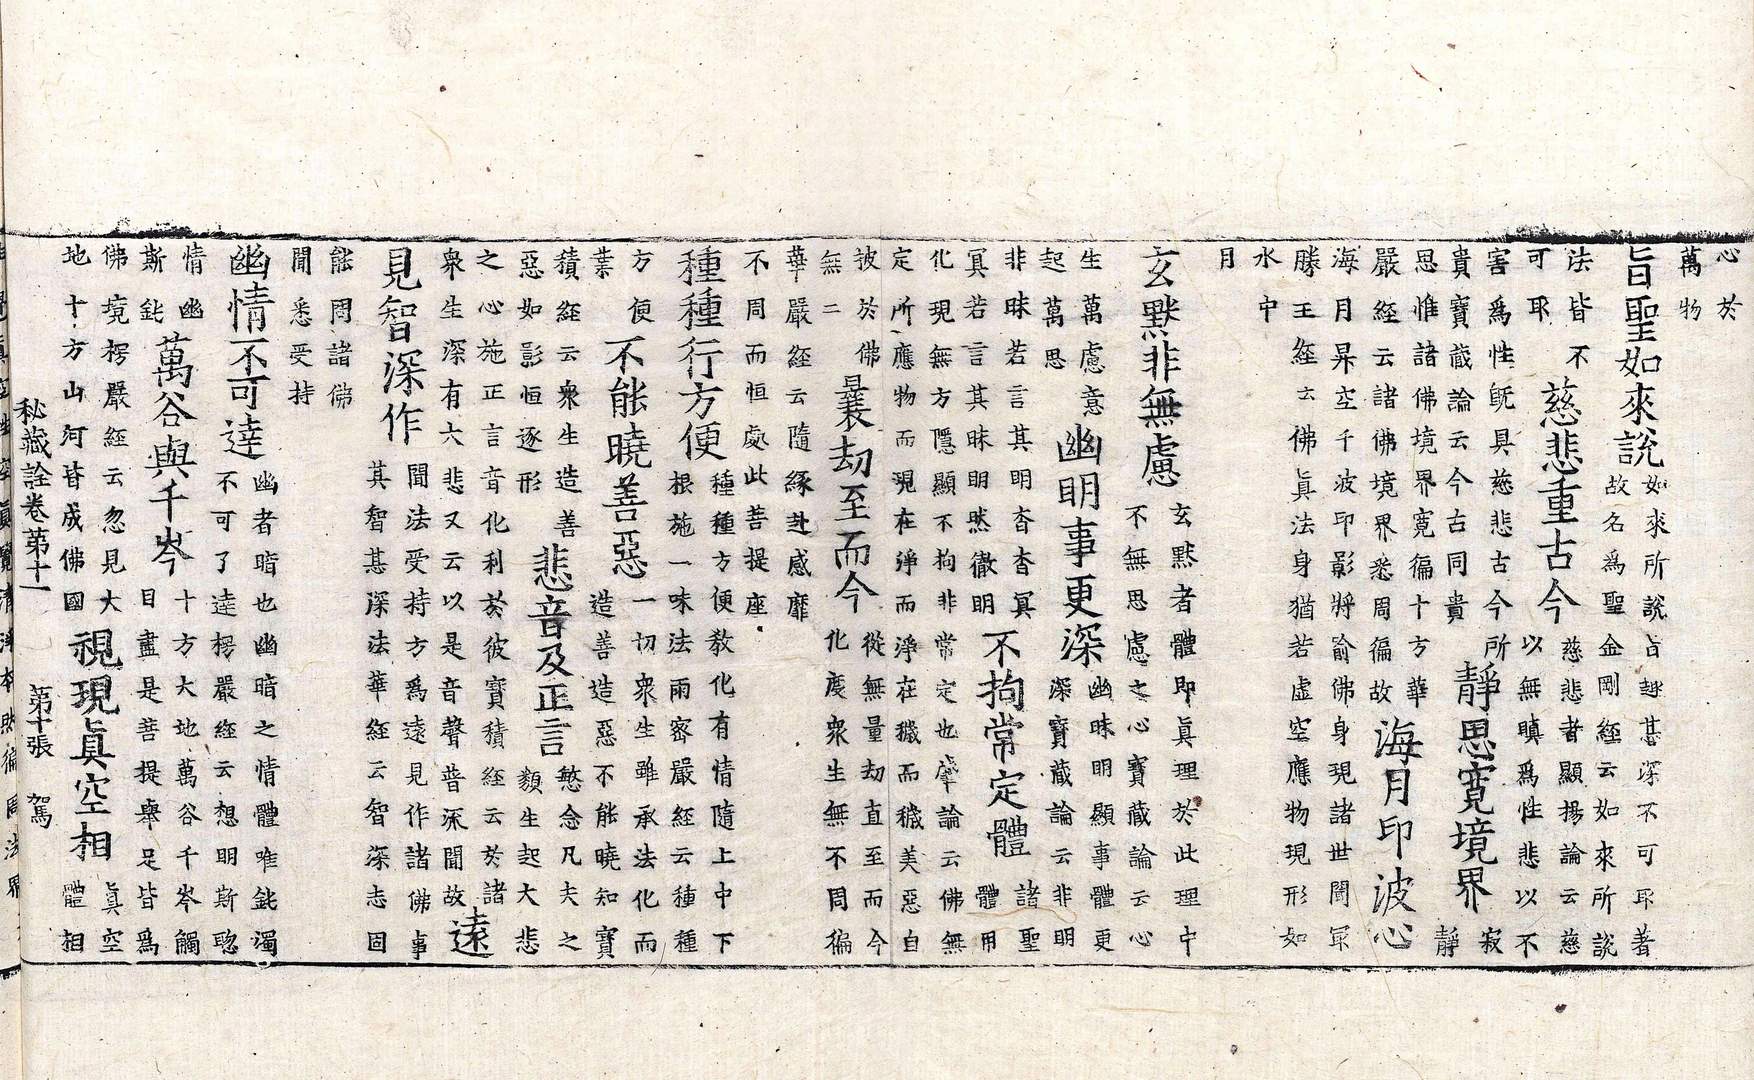 心於
萬物
旨聖如來說
如來所說旨趣甚深不可耶著
故名爲聖金剛經云如來所說
法皆不
可耶
慈悲重古今
慈悲者顯揚論云慈
以無瞋爲性悲以不
害爲性旣具慈悲古今所
貴寶藏論云今古同貴
靜思寛境界
寂
靜
思惟諸佛境界寛徧十方華
嚴經云諸佛境界悉周徧故
海月印波心
海月昇空千波印影將喻佛身現諸世閒冣
勝王經云佛眞法身猶若虛空應物現形如
水中
月
玄默非無慮
玄默者體即眞理於此理中
不無思慮之心寶藏論云心
生萬慮意
起萬思
幽明事更深
幽昧明顯事體更
深寶藏論云非明
非昧若言其明杳杳冥
冥若言其昧明然徹明
不拘常定體
諸聖
體用
化現無方隱顯不拘非常定也肇論云佛無
定所應物而現在淨而淨在穢而穢美惡自
彼於佛
無二
曩劫至而今
從無量劫直至而今
化度衆生無不周徧
華嚴經云隨緣赴感靡
不周而恒處此菩提座
種種行方便
種種方便教化有情隨上中下
根施一味法雨密嚴經云種種
方便
業
不能曉善惡
一切衆生雖承法化而
造善造惡不能曉知寶
積經云衆生造善
惡如影恒逐形
悲音及正言
愍念凡夫之
類生起大悲
之心施正言音化利於彼寶積經云於諸
衆生深有六悲又云以是音聲普深聞故
遠
見智深作
聞法受持方爲遠見作諸佛事
其智甚深法華經云智深志固
能問諸佛
聞悉受持
幽情不可達
幽者暗也幽暗之情體唯鈍濁
不可了達楞嚴經云想明斯聦
情幽
斯鈍
萬谷與千岑
十方大地萬谷千岑觸
目盡是菩提舉足皆爲
佛境楞嚴經云忽見大
地十方山河皆成佛國
視現眞空相
眞空
體相
秘藏詮卷苐十一 苐十張 駕
性空眞覺清淨本然徧周法界